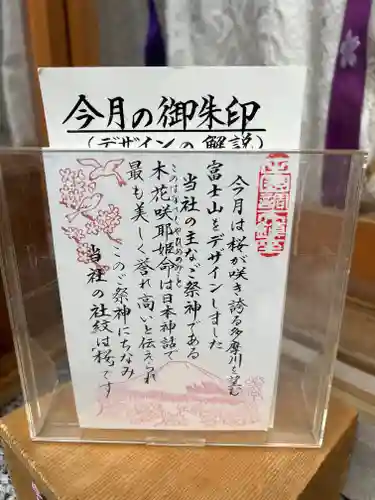 今月の御朱印
(デザインの解説)
今月は桜が咲き誇る多摩川を望む
富士山をデザインしました
当社の主なご祭神である
このはなさくやひめのみこと
木花咲耶姫命は日本神話で
最も美しく誉れ高いと伝えられ
このご祭神にちなみ
当社の社紋は桜です